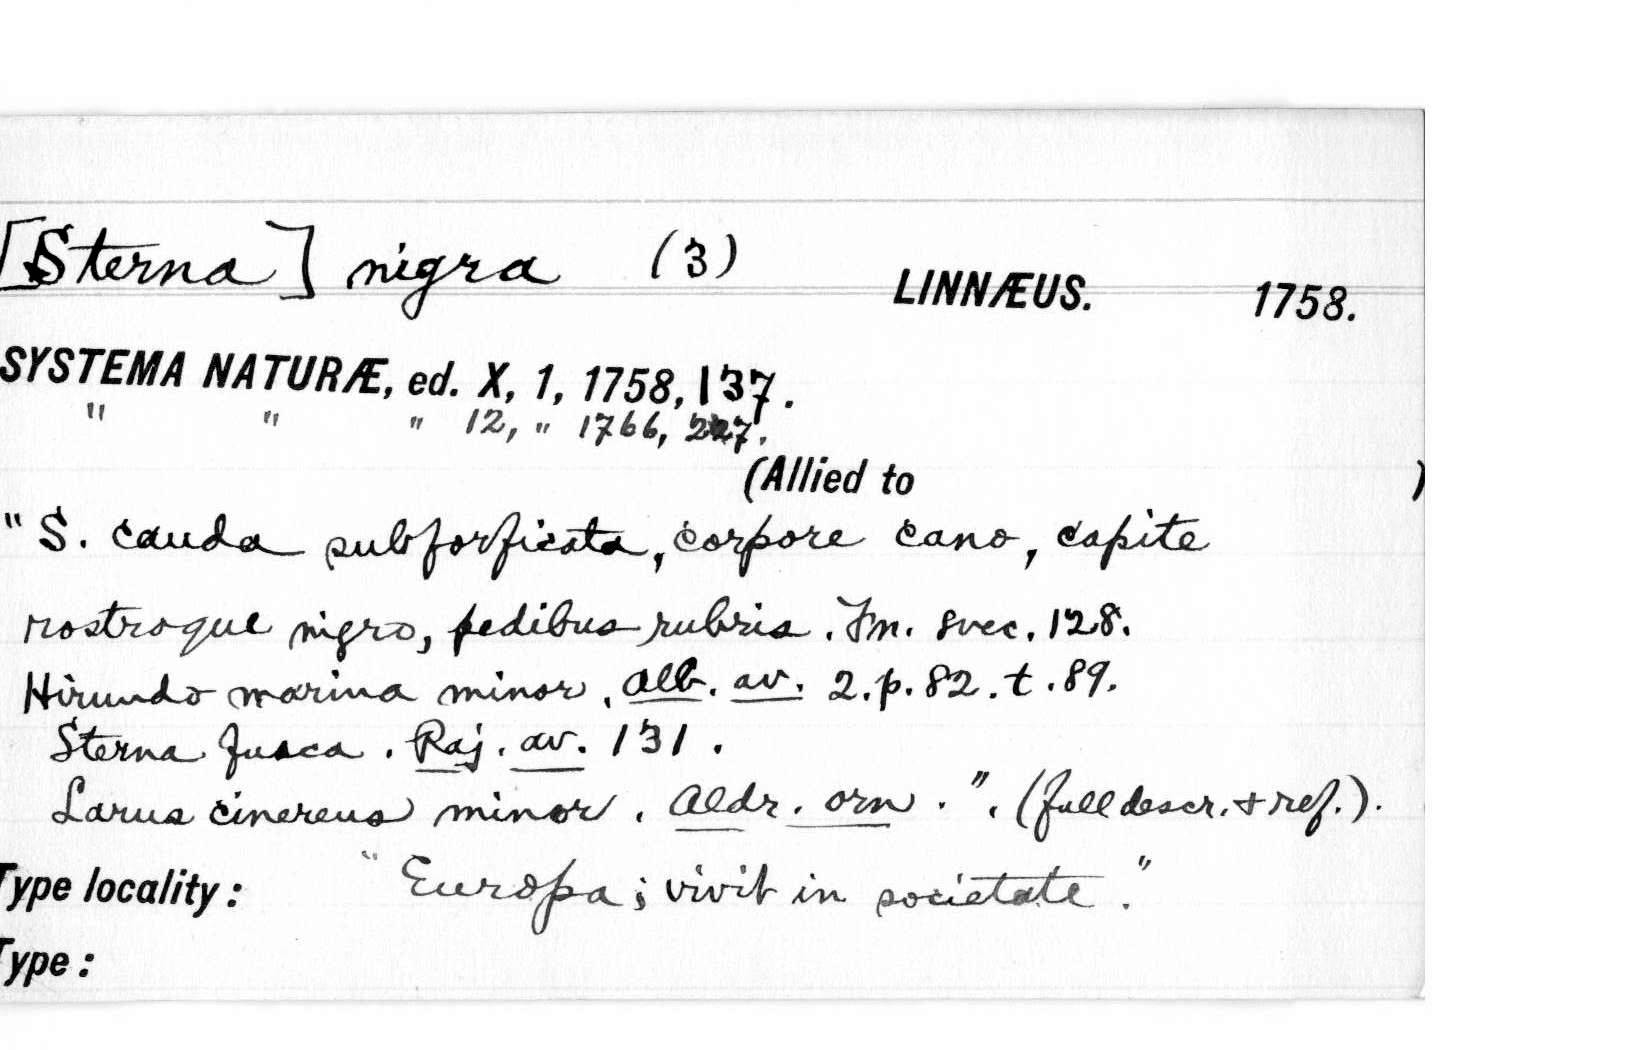 [Sterna] nigra (3) LINNÆUS. 1758.
SYSTEMA NATURÆ, ed. X, 1, 1758, 137.
" " " 12, " 1766, 227.
(Allied to )
"S. cauda subforficata, corpore cano, capite
rostroque nigro, pedibus rubris. Fn. svec. 128.
Hirundo marina minor. Alb. av. 2. p. 82. t. 89.
Sterna fusca. Raj. av. 131.
Larus cinereus minor. Aldr. orn.". (full descr. & ref.).
Type locality: "Europa; vivit in societate."
Type: